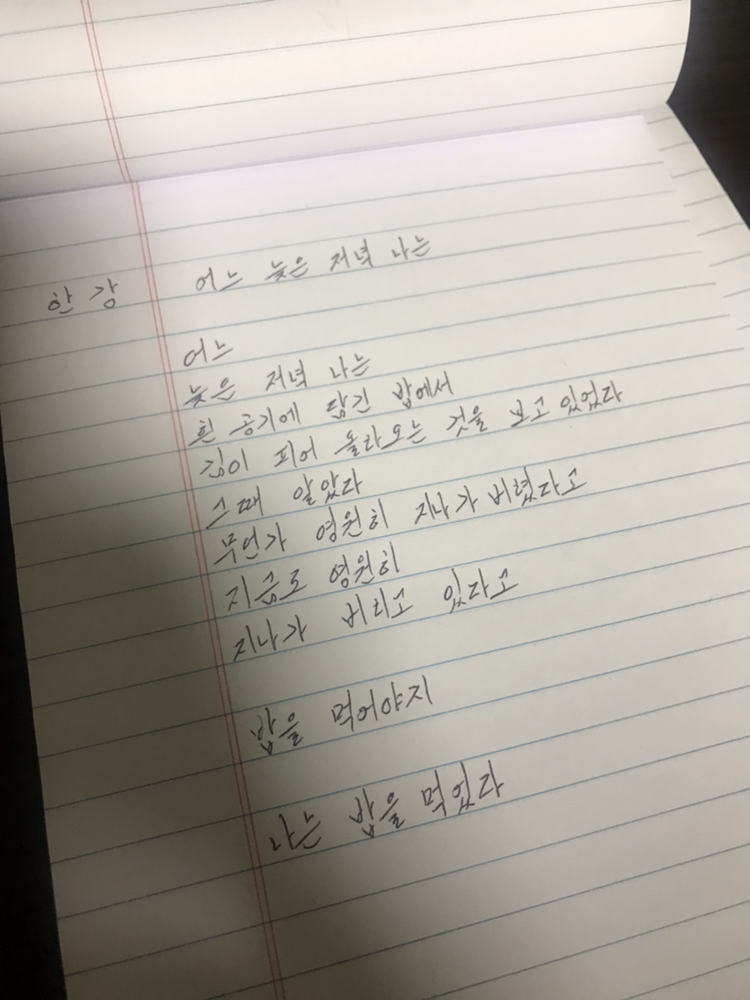 한강 어느 늦은 저녁 나는
어느
늦은 저녁 나는
흰 공기에 담긴 밥에서
김이 피어 올라오는 것을 보고 있었다
그때 알았다
무언가 영원히 지나가 버렸다고
지금도 영원히
지나가 버리고 있다고
밥을 먹어야지
나는 밥을 먹었다